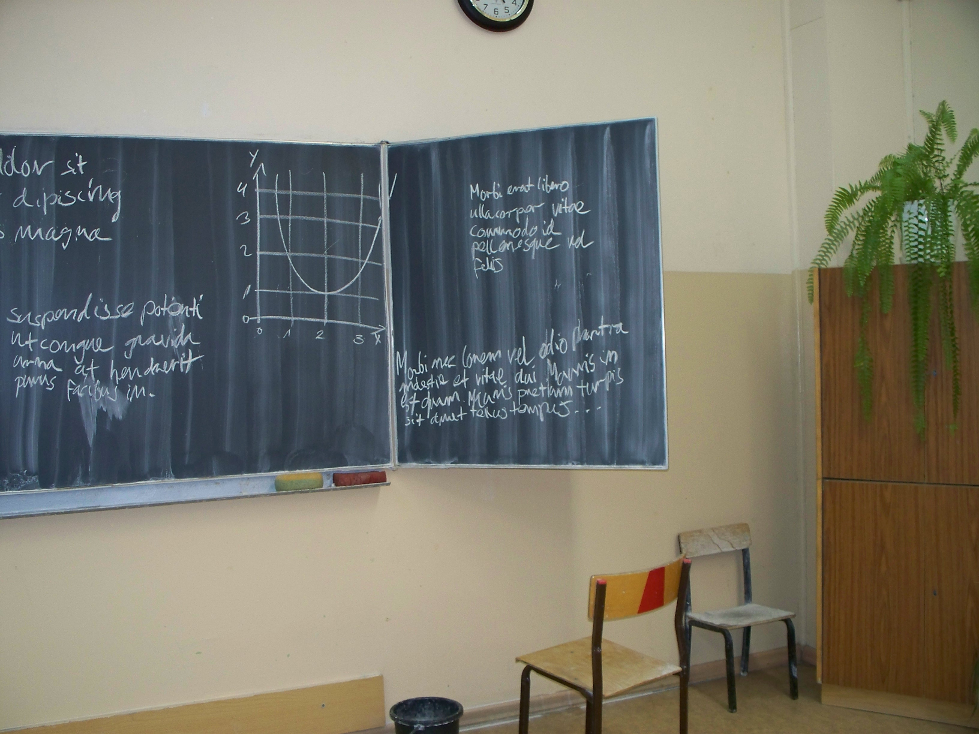 dolor sit
dipiscing
magna
suspendisse potenti
ut congue gravida
urna at hendrerit
purus facibus in.
Y
4
3
2
1
0
0 1 2 3 X
Morbi erat libero
ullacorpar vitae
commodo id
pellenesque vel
felis
Morbi nec lorem vel odio pharetra
molestie et vitae dui. Mauris in
est quam. Mauris pretium turpis
sit amet tellus tempus...
7 6 5 4